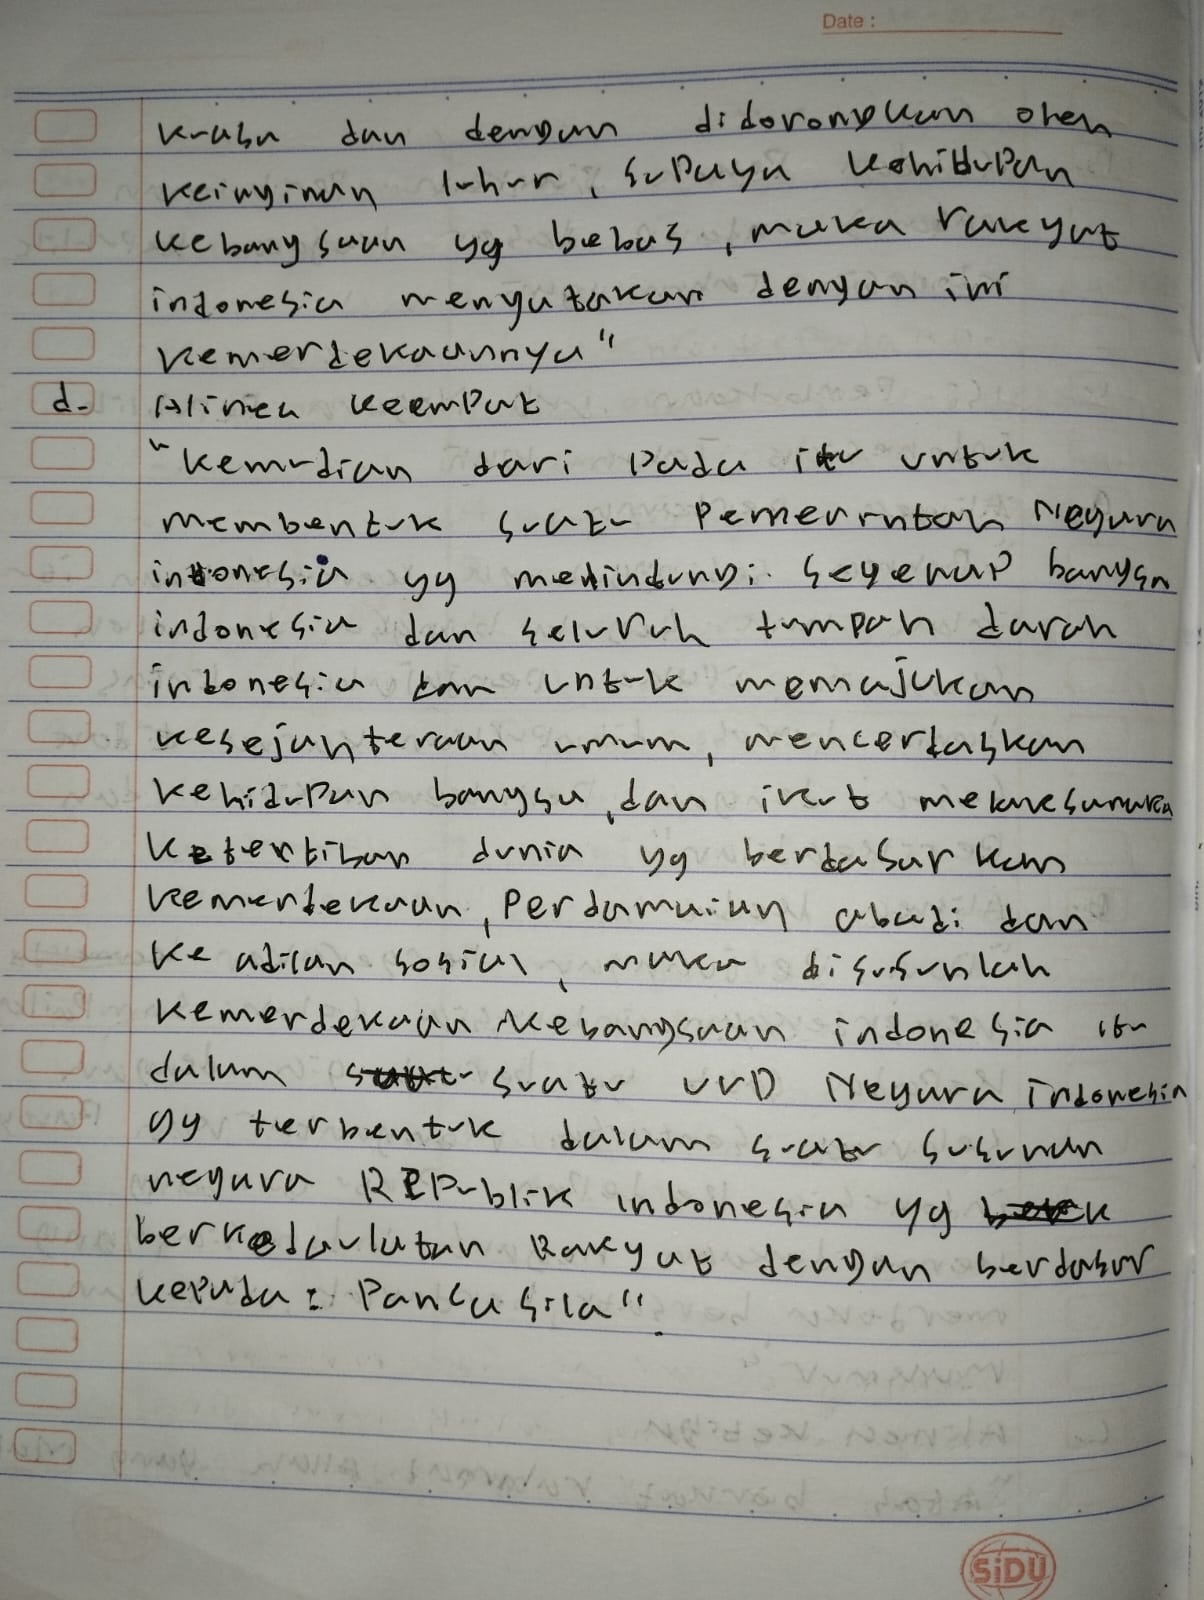 Date :
kuasa dan dengan didorongkan oleh
keinginan luhur, supaya kehidupan
kebangsaan yg bebas, maka rakyat
indonesia menyatakan dengan ini
kemerdekaannya"
d. Alinea keempat
"kemudian dari pada itu untuk
membentuk suatu pemerintah Negara
indonesia yg melindungi segenap bangsa
indonesia dan seluruh tumpah darah
indonesia dan untuk memajukan
kesejahteraan umum, mencerdaskan
kehidupan bangsa, dan ikut
ketertiban dunia yg berdasarkan
kemerdekaan, perdamaian abadi dan
ke adilan sosial, maka disusunlah
kemerdekaan kebangsaan indonesia itu
dalam suatu UUD Negara Indonesia
yg terbentuk dalam suatu susunan
negara REPublik indonesia yg
berkedaulatan Rakyat dengan berdasar
kepada : Panca sila".
SiDU